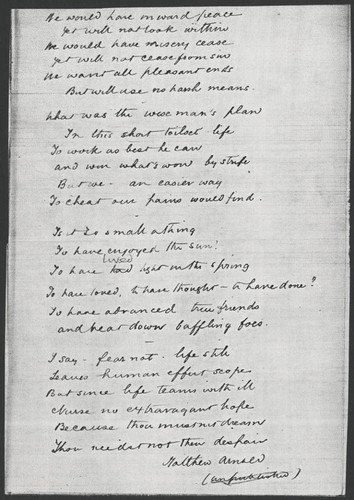 We would have inward peace
Yet will not look within
We would have misery cease
Yet will not cease from sin
We want all pleasant ends
But will use no harsh means.
What was the wise man's plan
In this short toilset life
To work as best he can
and win what's won by strife
But we - an easier way
To cheat our pains would find.
Is it so small a thing
To have enjoyed the sun?
To have lived light in the spring
To have loved, to have thought - to have done?
To have advanced true friends
and beat down baffling foes.
I say - fear not - life still
Leaves human effort scope
But since life teems with ill
Nurse no extravagant hope
Because thou must not dream
Thou needst not then despair
Matthew Arnold
(unpublished)